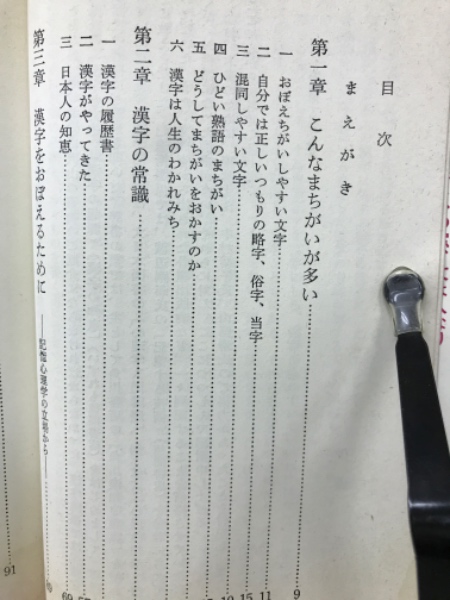 目次
まえがき
第一章 こんなまちがいが多い……………9
一 おぼえちがいしやすい文字……………11
二 自分では正しいつもりの略字、俗字、当字……………15
三 混同しやすい文字
四 ひどい熟語のまちがい
五 どうしてまちがいをおかすのか
六 漢字は人生のわかれみち
第二章 漢字の常識
一 漢字の履歴書
二 漢字がやってきた
三 日本人の知恵
第三章 漢字をおぼえるために ――記憶心理学の立場から――
91